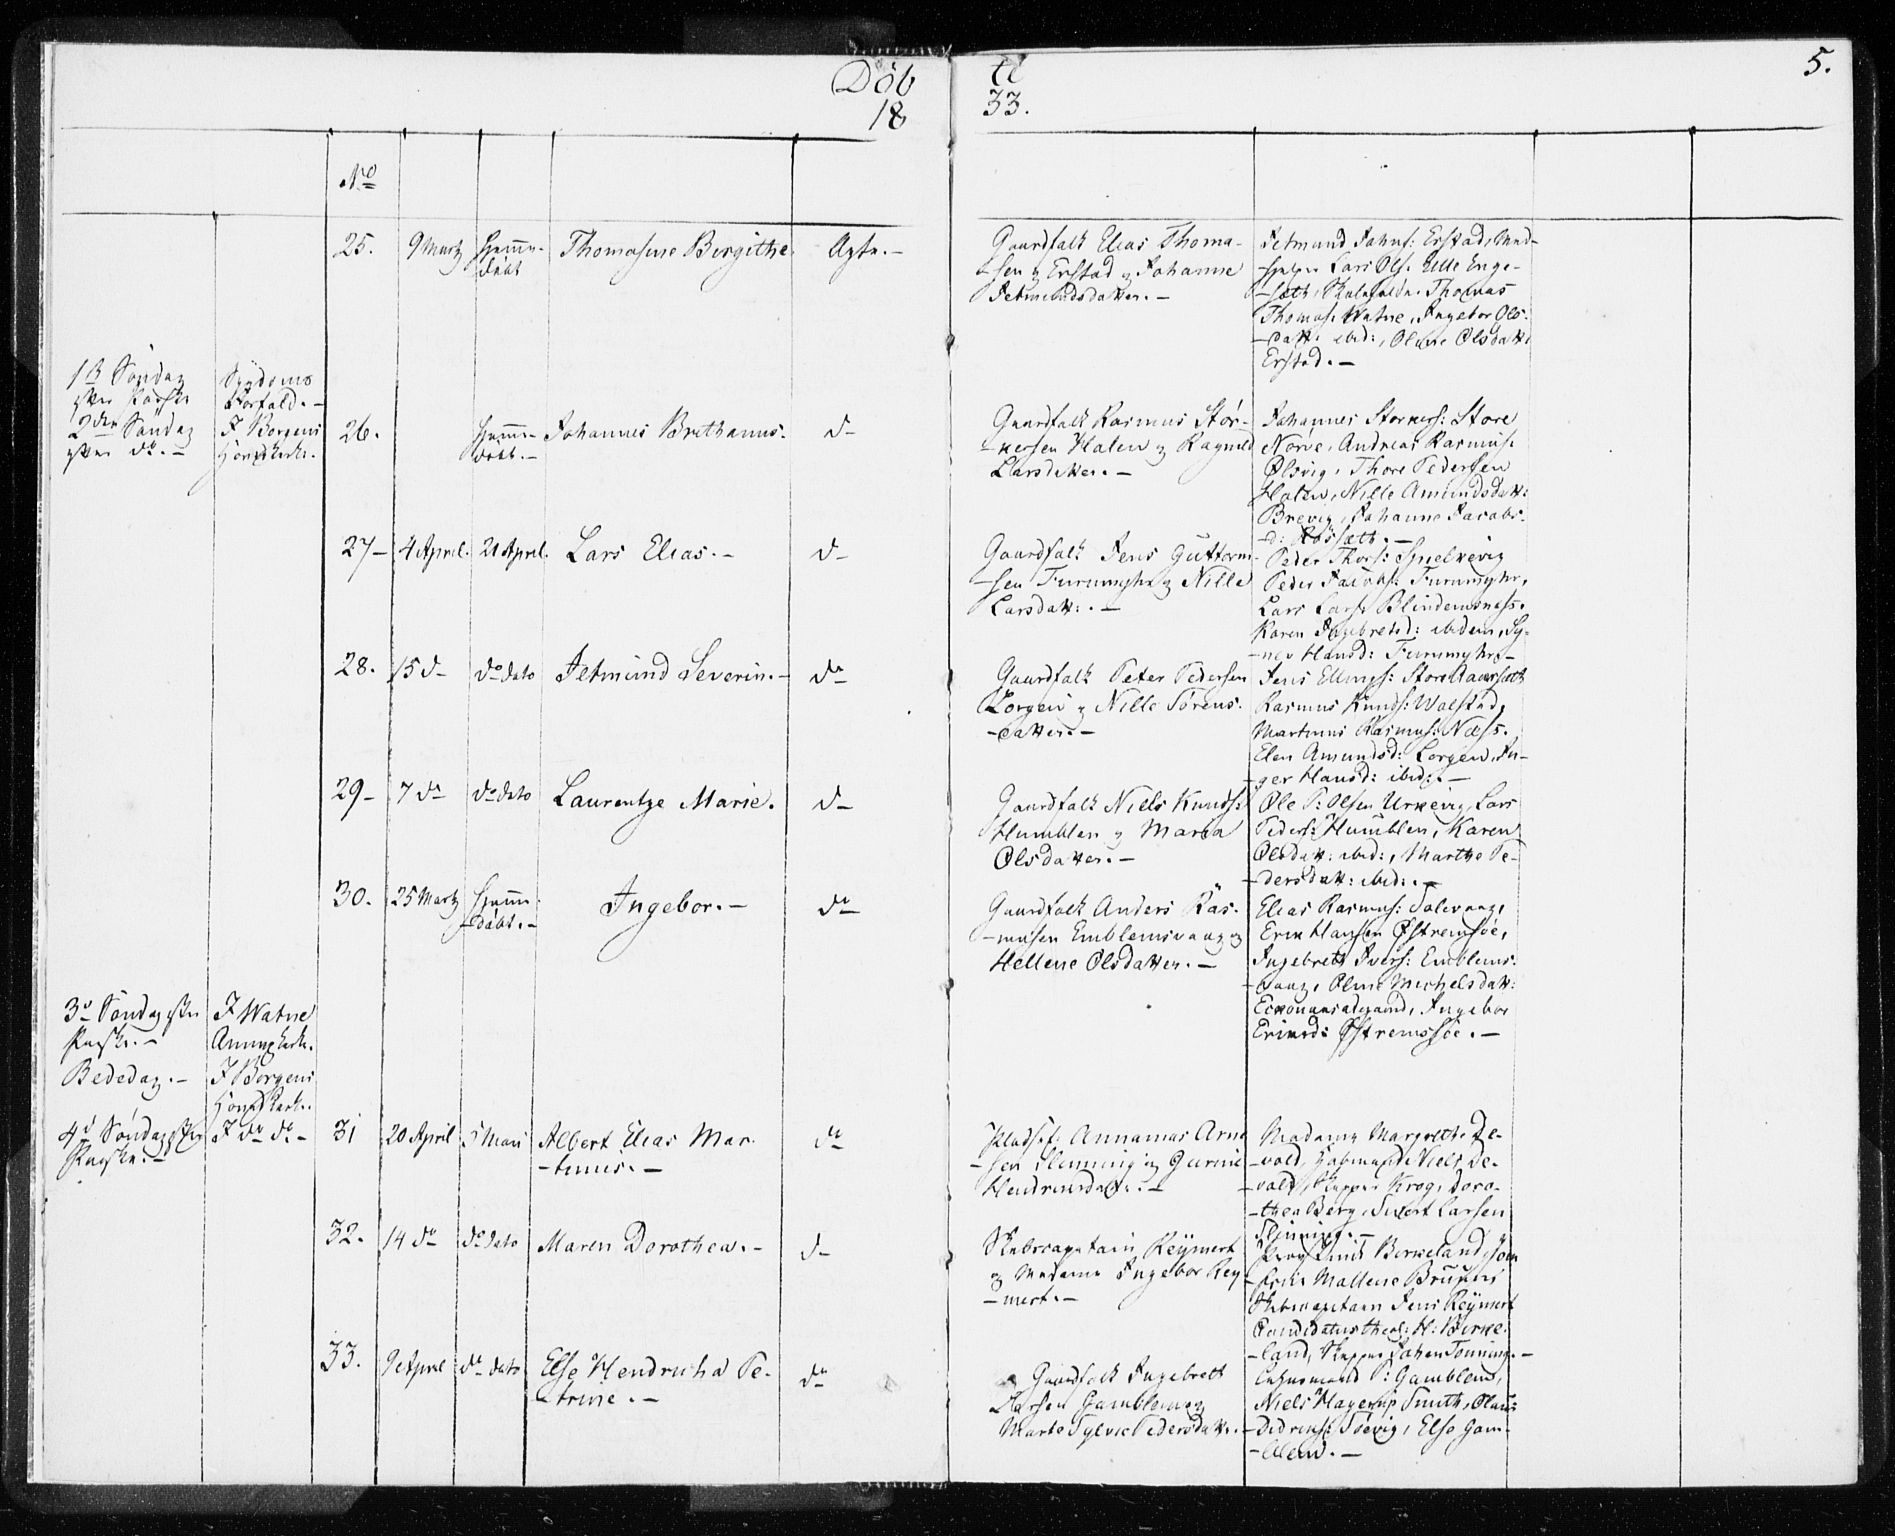 Döb
te
5.
18
33.
No
25.
9 Martz
Hjemme-
döbt
Thomasine Birgithe.
Ægte. -
Gaardfolk Elias Thoma-
-sen Erstad og Johanne
Jetmundsdatter. -
Jetmund Johns: Erstad, Med-
-hjelper Lars Ols: Ulle Enge-
-sæth, Skoleholder Thomas
Thomas: Watne, Ingebor Ols-
datt: ibid:, Oline Olsdatt:
Erstad. -
1ste Söndag
efter Paaske
Sygdoms
Forfald. -
2den Söndag
efter do. -
I Borgens
Hovedkirke.
26.
Hjemme-
döbt. -
Johannes Brithanus.
d-
Gaardfolk Rasmus Stör-
-kersen Haten og Ragnild
Larsdatter. -
Johannes Storkers: Store
Nørve, Andreas Rasmus:
Ølsvig, Thore Pedersen
Haten, Nille Amundsdatt:
Brevig, Johanne Jacobs-
d: Røssæth. -
27-
4 April.
21 April.
Lars Elias. -
d-
Gaardfolk Jens Guttorm-
-sen Furmyhr og Nille
Larsdatt: . -
Peder Thors: Spielkevig
Peder Jacobs: Furmyhr,
Lars Lars: Blindemsnæss.
Karen Ingebretsd: ibidem, Sy-
-nev Hansd: Furmyhr. -
28.
15 d-
do dato
Jetmund Severin. -
do
Gaardfolk Peter Pedersen
Lorgen og Nille Sörens-
-datter. -
Jens Ellings: Store Aaarsæth
Rasmus Knuds: Walstad,
Martinus Rasmus: Næss.
Elen Amundsd: Lorgen, In-
-ger Hansd: ibid:. -
29-
7 do
do dato
Laurentze Marie.
d-
Gaardfolk Niels Knuds:
Humblen og Maria
Olsdatter. -
Ole P: Olsen Urkevig, Lars
Peders: Humblen, Karen
Olsdatt: ibid:, Marthe Pe-
-dersdatt: ibid:. -
30.
25 Martz
Hjemme-
-döbt. -
Ingebor. -
do
Gaardfolk Anders Ras-
-musen Emblemsvaag og
Hellene Olsdatter. -
Elias Rasmus: Solevaag,
Erik Hansen Østremsøe,
Ingebreth Ivers: Emblems-
-vaag, Oline Michelsdatt:
Ingebor
Eriksd: Østremsøe. -
3de Söndag efter
Paaske. -
I Watne
Annexkirke.
Bededag. -
I Borgens
Hovedkirke.
4de Söndag efter
Paaske. -
I do do -
31
20 April
5 Maii
Albert Elias Mar-
-tinus. -
do
Pladsf: Annanias Arne
-sen Slinning og Gurine
Hendricsdatt: . -
Madame Margrethe De-
-vold, Kjøbmand Niels De-
-vold, Skipper Krog, Doro-
-thea Berg, Sivert Larsen
Slinning. -
32.
14 do
do dato
Maren Dorothea. -
d-
Skibscapitain Reymert
og Madame Ingebor Rey-
-mert. -
Provstinde Birkeland, Jom
-frue Mallene Bruuns
Skibscapitain Jens Reymert
Candidatus theol: H: Birke-
-land, Skipper Johan Tönning. -
33.
9 April
do dato
Else Hendricha Pe-
-trine. -
do
Gaardfolk Ingebrett
Larsen Gamblem og
Marte Sylvie Pedersdatt. -
Lehnsmand P: Gamblem,
Niels Hagerup Smith, Olaus
Didriks: Søevig, Else Gam-
-blem. -